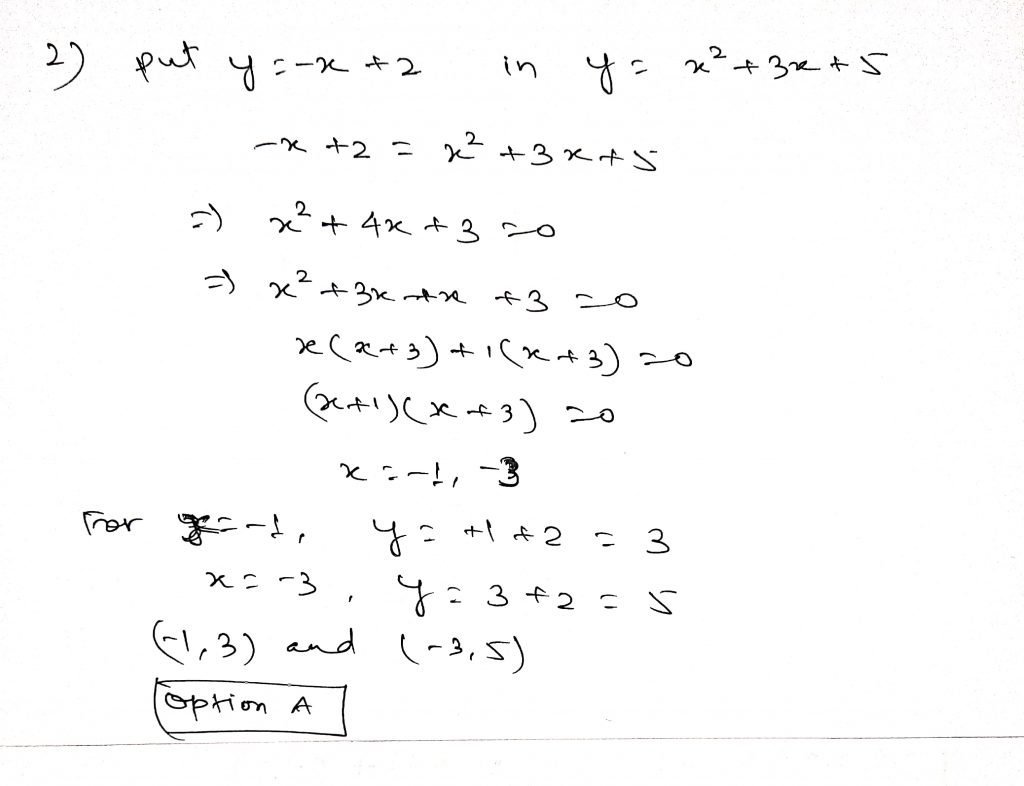 2) put y = -x + 2 in y = x² + 3x + 5
-x + 2 = x² + 3x + 5
=) x² + 4x + 3 = 0
=) x² + 3x + x + 3 = 0
x(x+3) + 1(x+3) = 0
(x+1)(x+3) = 0
x = -1, -3
For x = -1, y = +1 + 2 = 3
x = -3, y = 3 + 2 = 5
(-1, 3) and (-3, 5)
option A